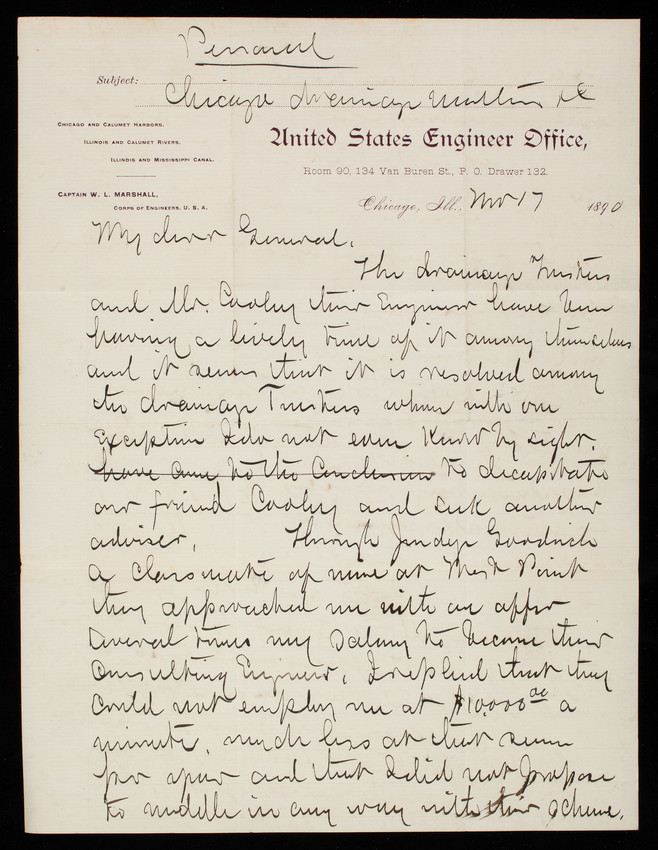 Personal
Subject:
Chicago drainage matters &c
CHICAGO AND CALUMET HARBORS.
ILLINOIS AND CALUMET RIVERS.
ILLINOIS AND MISSISSIPPI CANAL.
United States Engineer Office,
Room 90, 134 Van Buren St., P. O. Drawer 132.
CAPTAIN W. L. MARSHALL,
CORPS OF ENGINEERS, U. S. A.
Chicago, Ill., Nov 17 1890
My dear General,
The drainage Trustees
and Mr. Cooley their Engineer have been
having a lively time of it among themselves
and it seems that it is resolved among
the drainage Trustees whom with one
exception I do not even know by sight,
have come to the conclusion to decapitate
our friend Cooley and seek another
adviser. Through Judge Goodrich
a classmate of mine at West Point
they approached me with an offer
several times my salary to become their
Consulting Engineer, I replied that they
could not employ me at $10,000 00 a
minute, much less at that sum
per year and that I did not propose
to meddle in any way with their scheme.